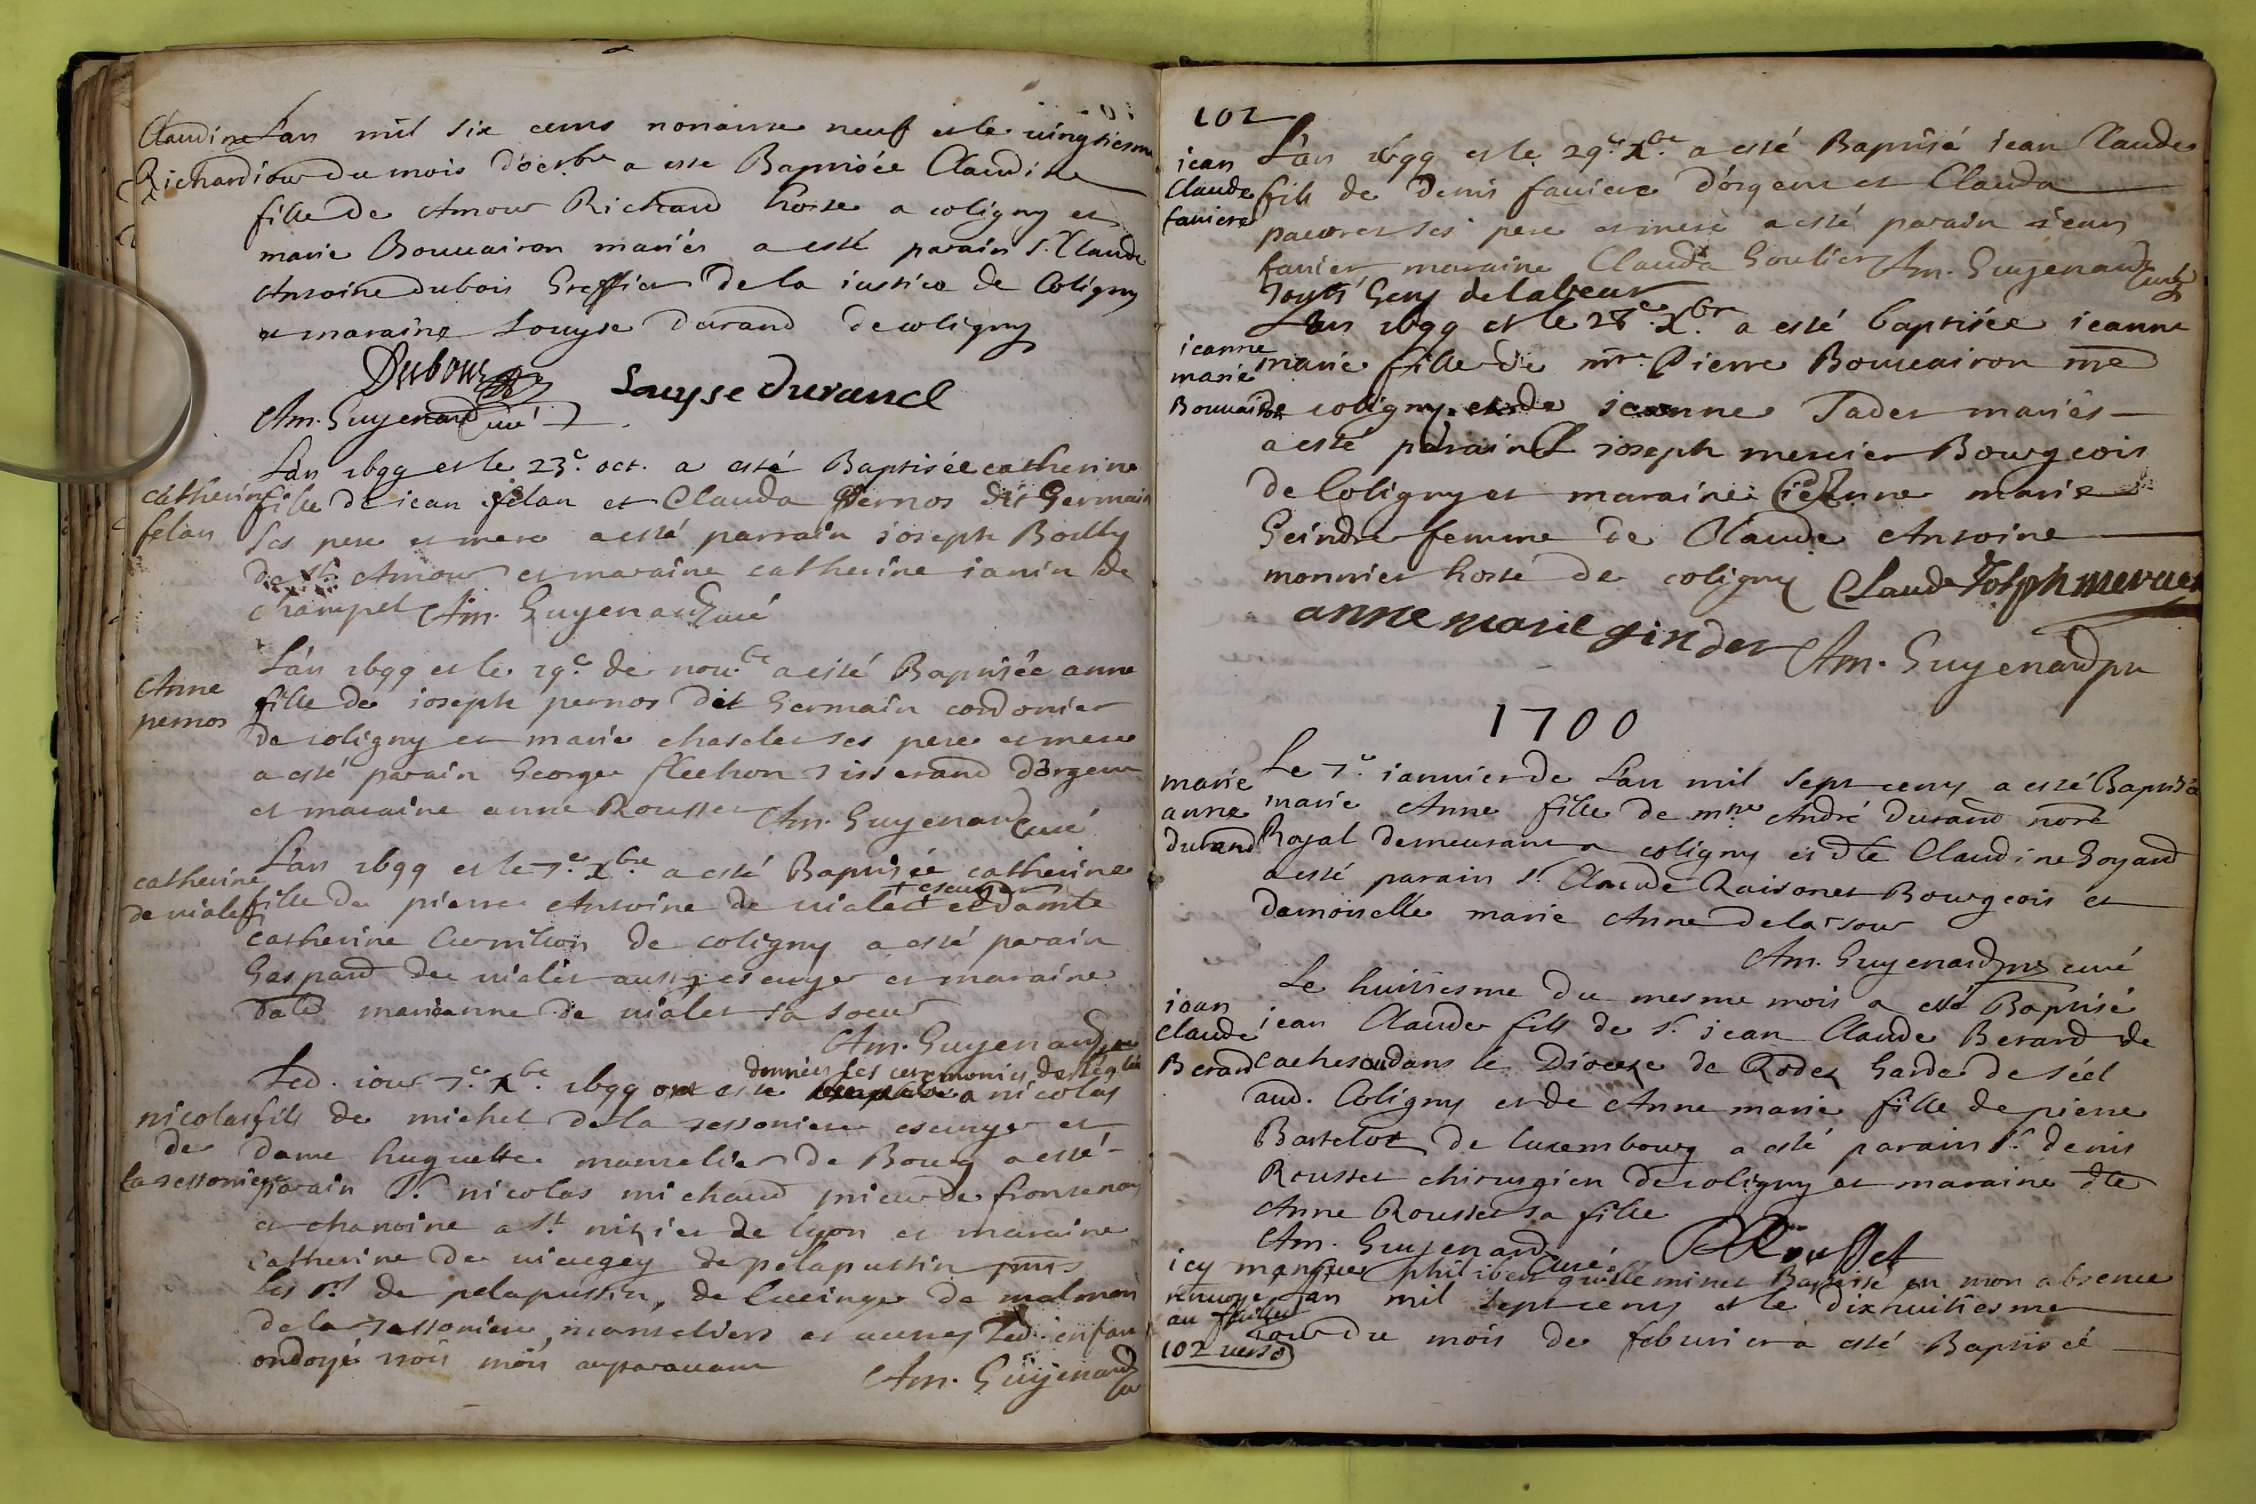 Claudine
Richard
L'an mil six cens nonante neuf et le vingtiesme
iour du mois d'octbre a esté Baptisée Claudine
fille de Amour Richard hoste a coligny et
marie Bouuairon mariés a esté parain Sr. Claude
Antoine dubois Greffier de la iustice de Coligny
et maraine Louyse Durand de coligny
Dubois
Louyse durand
Am. Guyenard curé
catherine
felan
L'an 1699 et le 23e. oct. a esté Baptisée catherine
fille de jean felan et Clauda Pernos dit Germain
ses pere et mere a esté parrain joseph Boilly
de St. Amour et maraine catherine janin de
champel Am. Guyenard curé
Anne
pernos
L'an 1699 et le 19e de nou.bre a esté Baptisée anne
fille de joseph pernos dit Germain cordonier
de coligny et marie chatelet ses pere et mere
a esté parain George flechon Tisserand d'orgent
et maraine anne Rousset Am. Guyenard curé
catherine
de uialet
L'an 1699 et le 7e. Xbre a esté Baptisée catherine
fille de pierre Antoine de uialet escuyer et damlle
catherine Cornilion de coligny a esté parain
Gaspard de uialet aussy escuyer et maraine
dalle marianne de uialet sa soeur
Am. Guyenard
nicolas
de
la tessoniere
Led. iour 7e. Xbre. 1699 ont esté données les ceremonies de l'eglise a nicolas
fils de michel de la tessoniere escuyer et
dame huguette manselier de Bourg a esté
parain Sr. nicolas michaud prieur de fronsenay
et chanoine a St. nizier de lyon et maraine
Catherine de uieugey de pelapussin pnts
les srs de pelapussin, de Lucinge de malmon
de la Tessoniere, manseliers et autres Led. enfant
ondoyé trois mois auparauant
Am. Guyenard
102
jean
Claude
fauiere
L'an 1699 et le 29e. Xbre a esté Baptisé jean Claude
fils de Denis fauiere d'orgent et Clauda
pauvret ses pere et mere a esté parain jean
fauier maraine Clauda Goulier Am. Guyenard curé
Touts Gens de labeur
jeanne
marie
Bouuairon
L'an 1699 et le 28e. Xbre a esté baptisée jeanne
marie fille de mre. Pierre Bouuairon me
de coligny et de jeanne Tader mariés
a esté parain Sr joseph mercier Bourgeois
de Coligny et maraine jeanne marie
Geindre femme de Claude Antoine
monnier hoste de coligny Claude Joseph mercier
anne marie ginder Am. Guyenard pre
1700
marie
anne
durand
Le 7e. januier de L'an mil sept cens a esté Baptisée
marie Anne fille de mtre André Durand nore
Royal demeurant a coligny et dlle Claudine Goyard
a esté parain sr. Claude Raisonet Bourgeois et
damoiselle marie Anne de la tour
Am. Guyenard pre curé
jean
claude
Berard
Le huitiesme du mesme mois a esté Baptisé
jean Claude fils de Sr. jean Claude Berard de
cachesou dans le Diocese de Rodez Garde de séel
aud. Coligny et de Anne marie fille de pierre
Bartelot de luxembourg a esté parain Sr. denis
Rousset chirurgien de coligny et maraine dlle
Anne Rousset sa fille
Am. Guyenard curé
D Rousset
icy manque philibert guilleminet Baptisé en mon absence
renuoye
au feuillet
102 verso
L'an mil sept cens et le dixhuitiesme
jour du mois de feburier a esté Baptisé